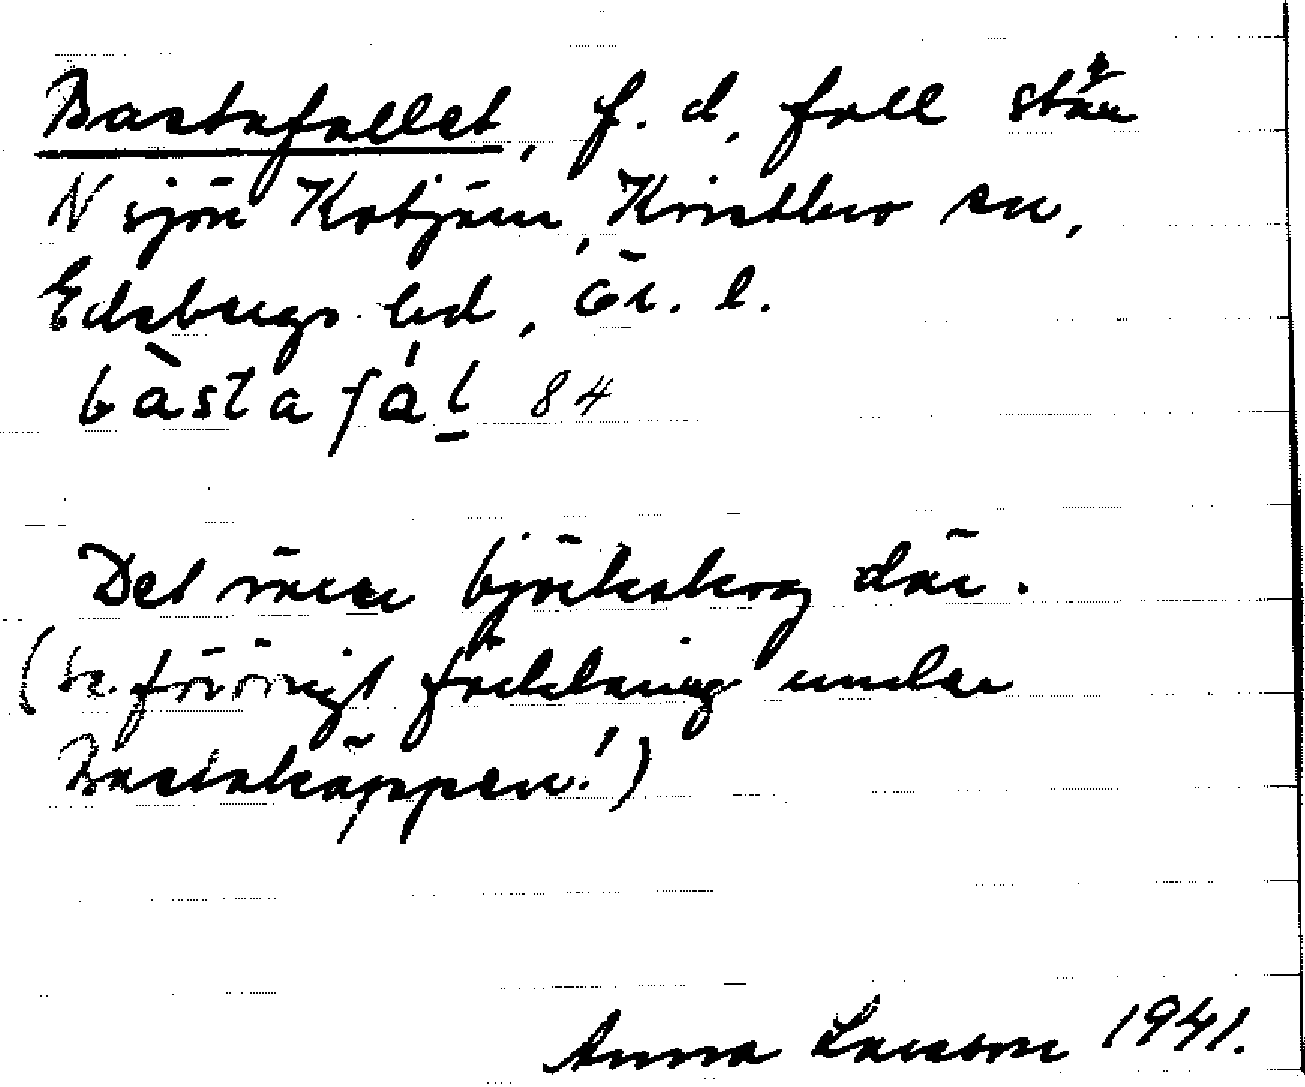 Bastafallet, f. d. fall
N sjön Kotjärn, Kristbergs sn,
Edsbergs hd, Ör. l.
bàstafál 84
Det växer björkskog där.
(Se förövrigt förklaring under
Bastakäppen!)
Anna Larsson 1941.